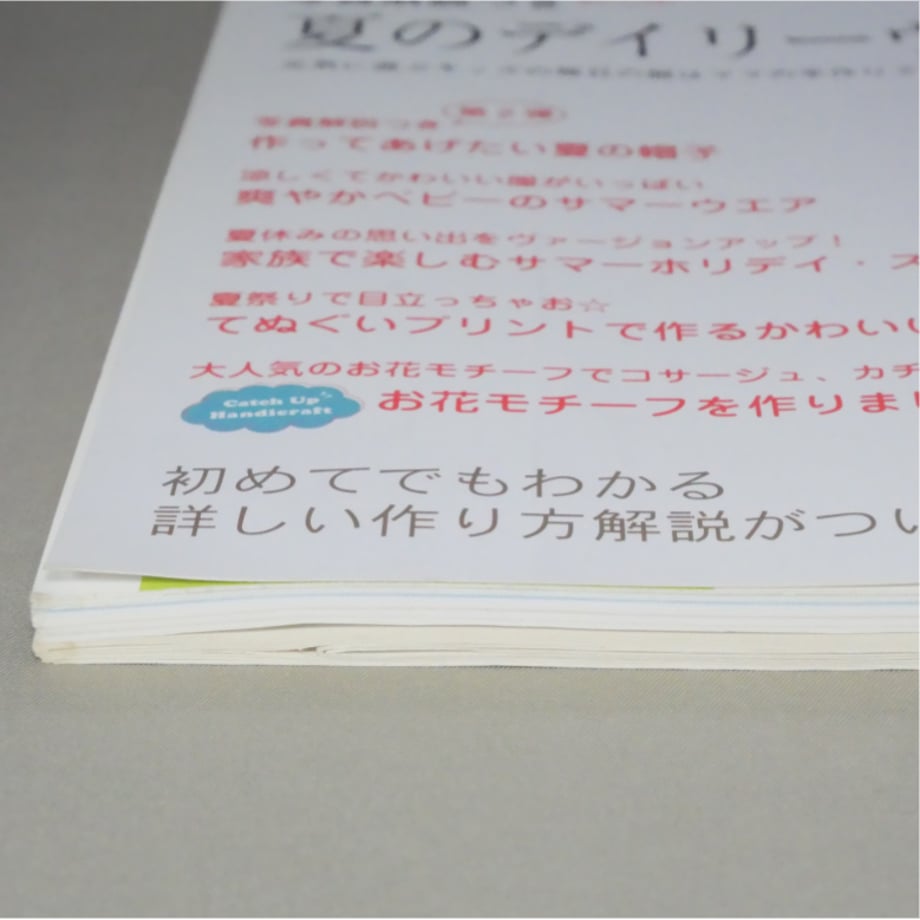 夏のデイリーウ
第2弾
写真解説つき
作ってあげたい夏の帽子
涼しくてかわいい服がいっぱい
爽やかベビーのサマーウエア
夏休みの思い出をヴァージョンアップ!
家族で楽しむサマーホリデイ・ス
夏祭りで目立っちゃお☆
てぬぐいプリントで作るかわいい
大人気のお花モチーフでコサージュ、カチ
Catch Up♪
Handicraft
お花モチーフを作りまし
初めてでもわかる
詳しい作り方解説がつい